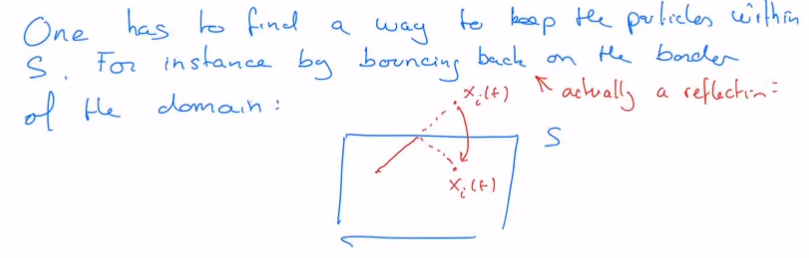 One has to find a way to keep the particles within
S. For instance by bouncing back on the border
of the domain :
↖ actually a reflection :
x_i(t)
S
x_i(t)